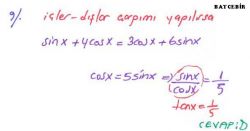 BATCEBİR
9/. içler-dışlar çarpımı yapılırsa
sinx + 4cosx = 3cosx + 6sinx
cosx = 5sinx ⇒ sinx/cosx = 1/5
tanx = 1/5
CEVAP: D